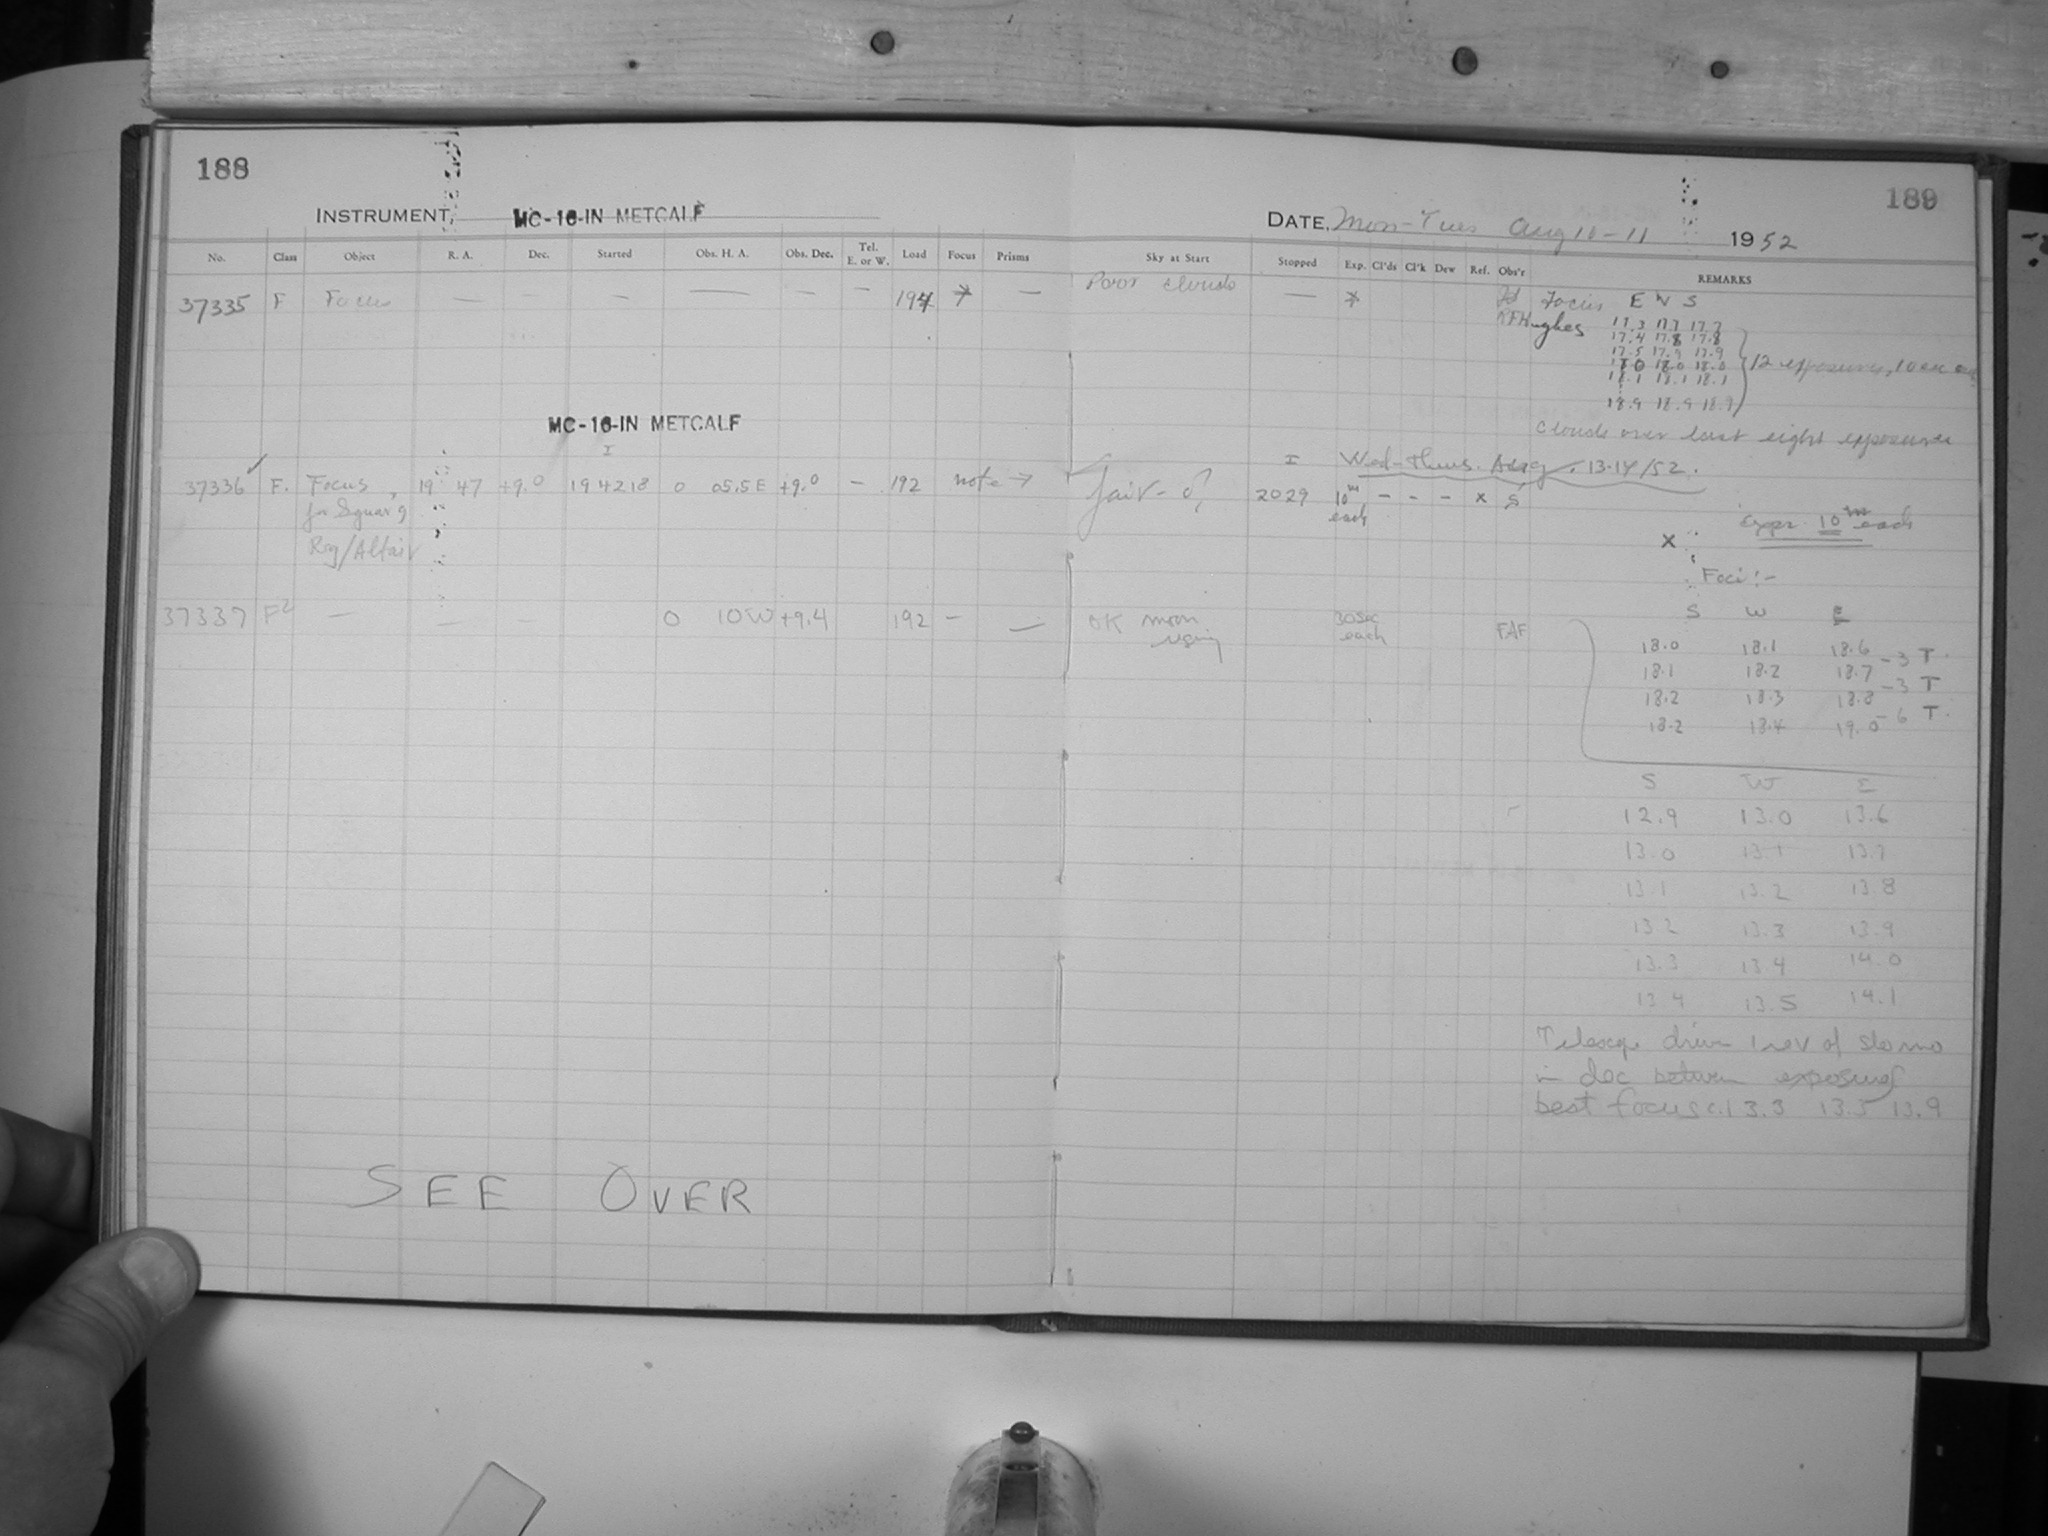 188
INSTRUMENT, MC-16-IN METCALF
No. Class Object R. A. Dec. Started Obs. H. A. Obs. Dec. Tel. E. or W. Load Focus Prisms
37335 F Focus — — — — — — 194 * —
MC-16-IN METCALF
I
37336 ✓ F. Focus, 19 47 +9.0 19 42 18 0 05.5 E +9.0 — 192 note →
for Square
Reg/Altair
37337 F2 — — — 0 10 W +9.4 192 — —
SEE OVER
189
DATE, Mon-Tues Aug 10-11 1952
Sky at Start Stopped Exp. Cl'ds Cl'k Dew Ref. Obs'r REMARKS
Poor clouds — * Focus E W S
Hughes 17.3 17.7 17.7
17.4 17.8 17.8
17.5 17.9 17.9
18.0 18.0 18.0
18.1 18.1 18.1
12 exposures, 10 sec
18.9 18.9 18.9
Clouds over last eight exposures
I Wed-Thurs. Aug. 13-14/52.
fair - 2029 10m each - - - x S
x Expr. 10m each
Foci:-
S W E
OK moon 30 sec each FAF
18.0 18.1 18.6
-3 T.
18.1 18.2 18.7
-3 T
18.2 18.3 18.8
-6 T.
18.2 18.4 19.0
S W E
12.9 13.0 13.6
13.0 13.1 13.7
13.1 13.2 13.8
13.2 13.3 13.9
13.3 13.4 14.0
13.4 13.5 14.1
Telescope driven 1 rev of slo mo
in dec between exposures
best focus 13.3 13.5 13.9